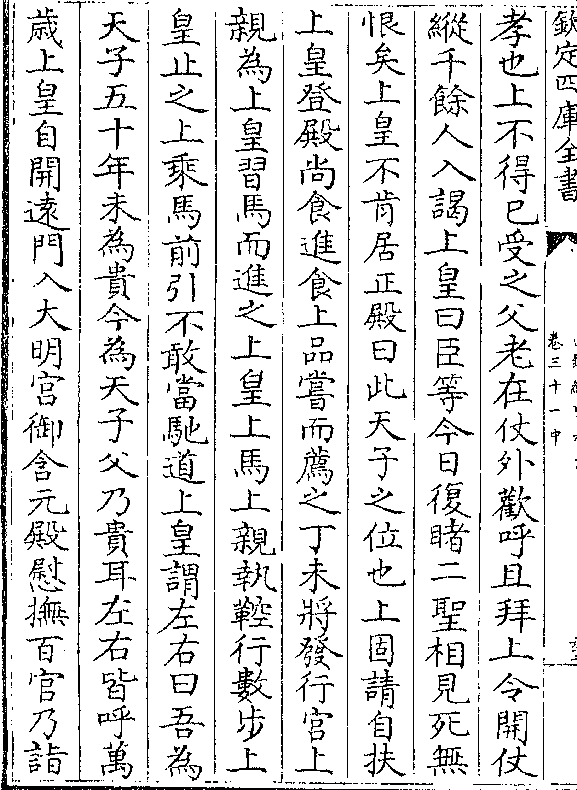 欽定四庫全書
卷三十一中
孝也上不得已受之父老在仗外歡呼且拜上令開仗
縱千餘人入謁上皇曰臣等今日復睹二聖相見死無
恨矣上皇不肯居正殿曰此天子之位也上固請自扶
上皇登殿尚食進食上品嘗而薦之丁未將發行宫上
親為上皇習馬而進之上皇上馬上親執鞚行數步上
皇止之上乘馬前引不敢當馳道上皇謂左右曰吾為
天子五十年未為貴今為天子父乃貴耳左右皆呼萬
歲上皇自開遠門入大明宫御含元殿慰撫百官乃詣